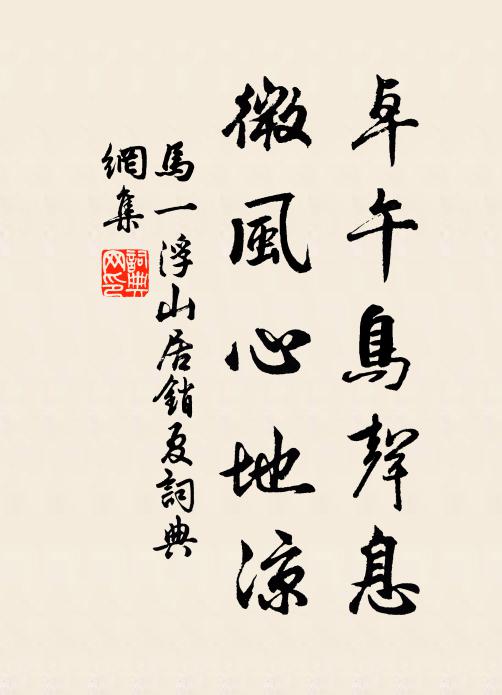 卓午鳥聲息
微風心地涼
馬一浮山居銷夏詞典
網集
詞典
网印